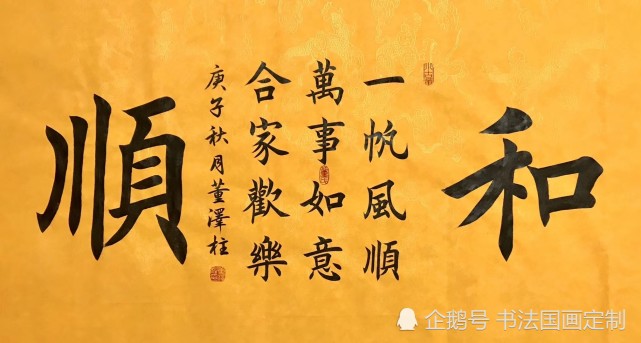 和
一帆風順
萬事如意
合家歡樂
庚子秋月董澤柱
順
企鹅号 书法国画定制